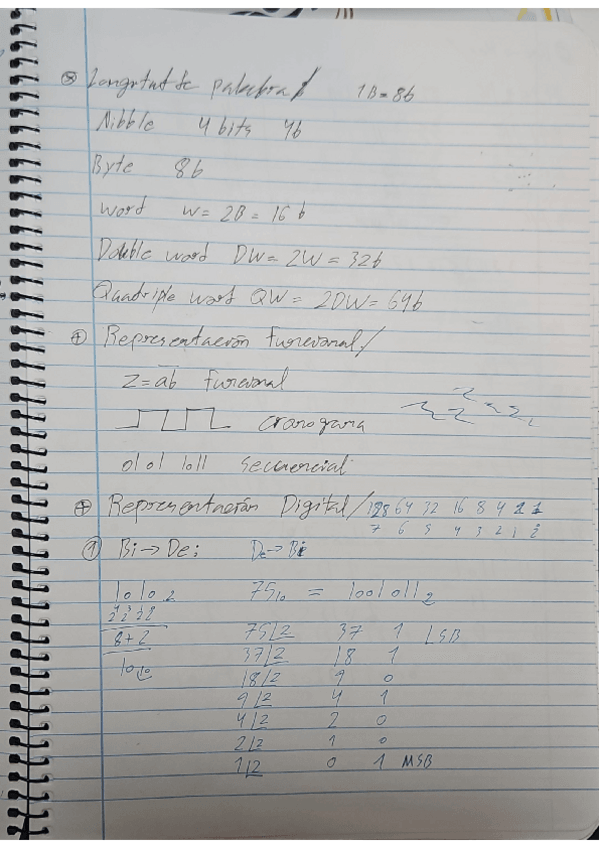 ⊗ Longitud de palabra/ 1B = 8b
Nibble 4 bits 4b
Byte 8b
word w = 2B = 16 b
Double word DW = 2W = 32b
Quadriple word QW = 2DW = 64b
⊕ Representación Funcional/
Z = ab Funcional
cronograma
0101 1011 Secuencial
⊕ Representación Digital/ 128 64 32 16 8 4 2 1
7 6 5 4 3 2 1
① Bi → De; De → Bi
1010₂ 75₁₀ = 1001011₂
8 + 2
10₁₀
75/2 37 1 LSB
37/2 18 1
18/2 9 0
9/2 4 1
4/2 2 0
2/2 1 0
1/2 0 1 MSB